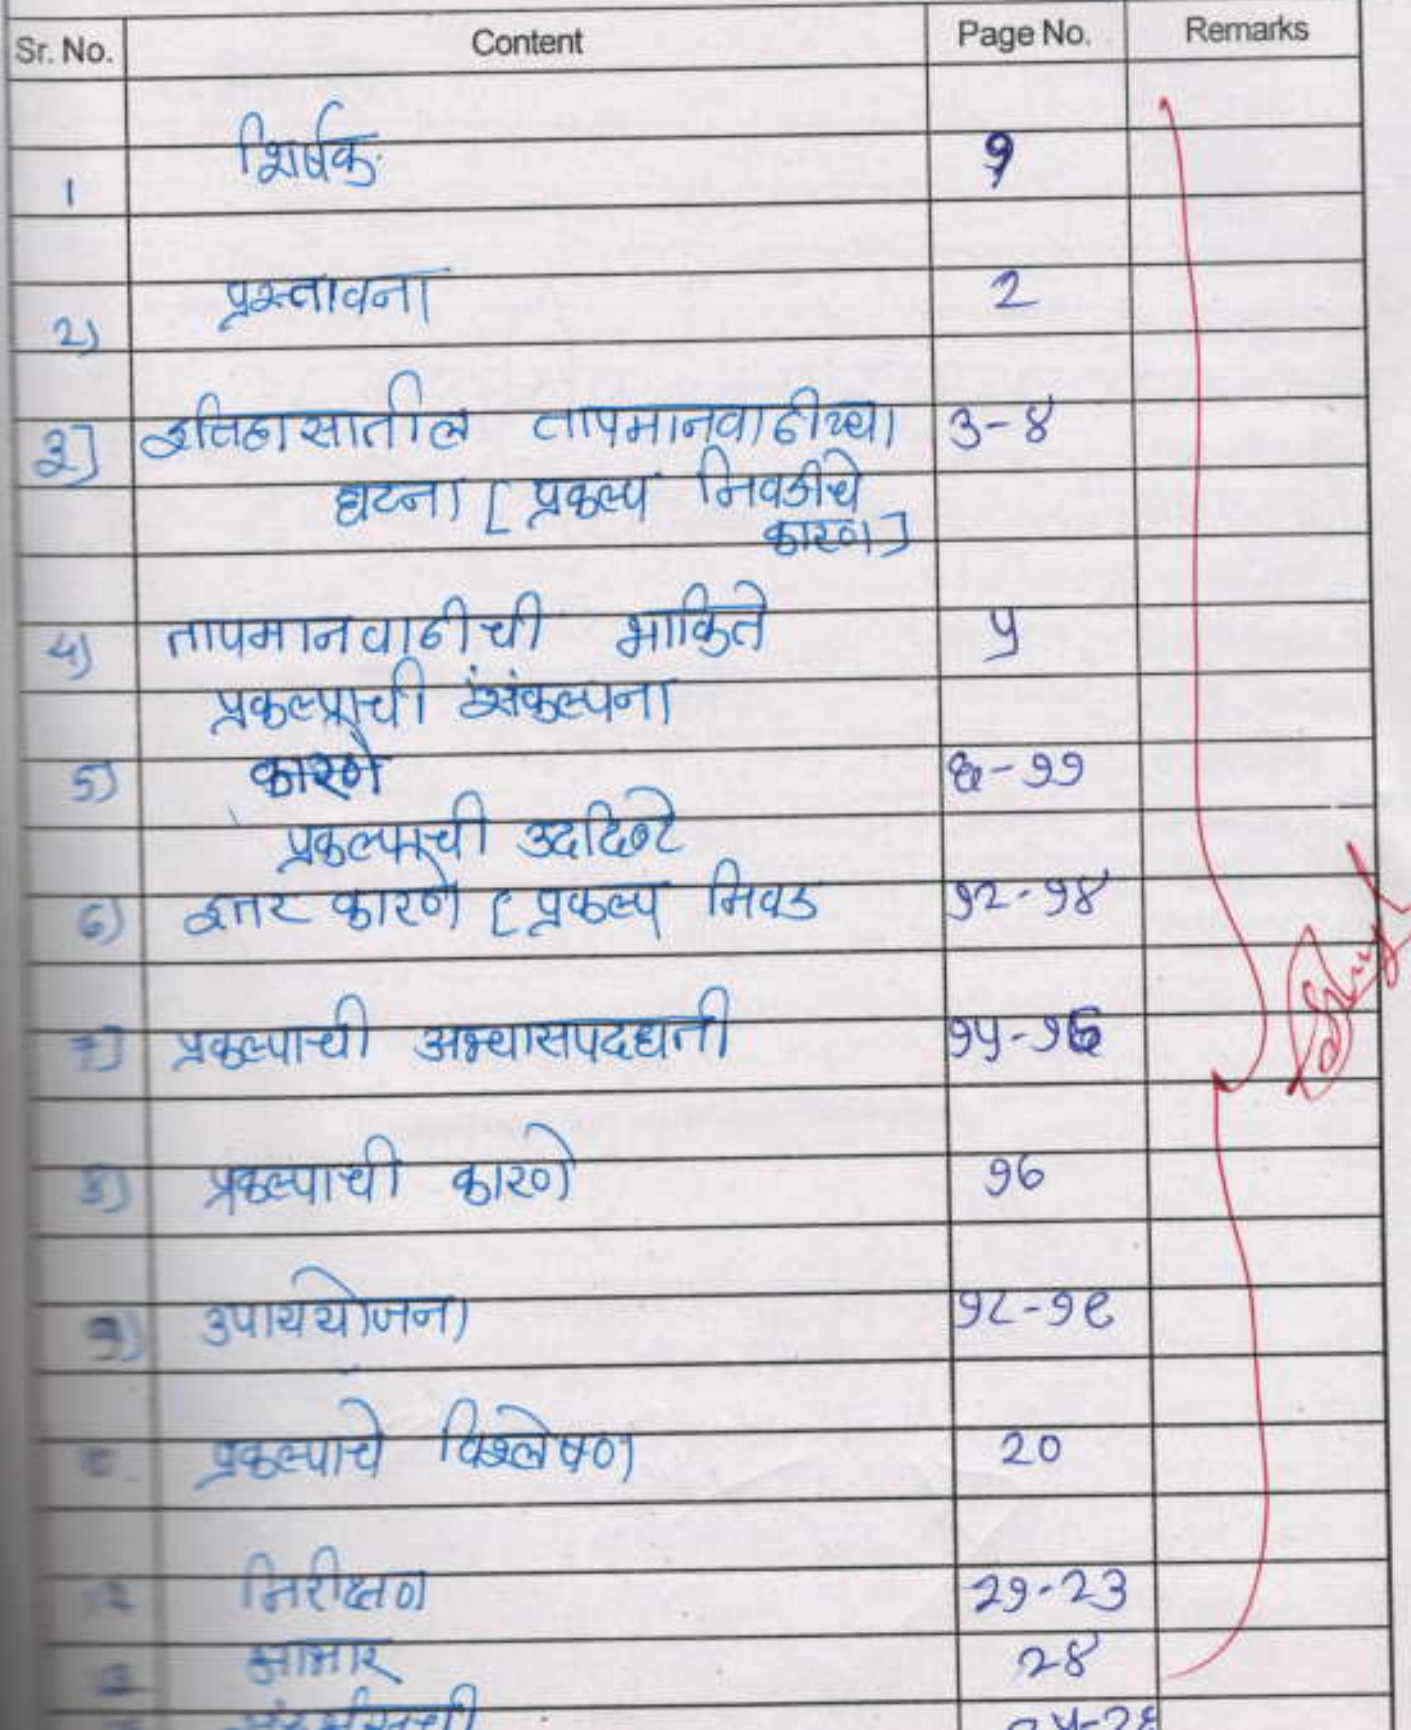 Sr. No. Content Page No. Remarks
1 शिर्षक १
2) प्रस्तावना 2
3] इतिहासातील तापमानवाढीच्या ३-४
घटना [ प्रकल्प निवडीचे
कारण]
4) तापमानवाढीची भाकिते ५
प्रकल्पाची संकल्पना
5) कारणे ६-११
प्रकल्पाची उद्दिष्टे
6) इतर कारणे [ प्रकल्प निवड १२-१४
7] प्रकल्पाची अभ्यासपद्धती १५-१६
8) प्रकल्पाची कारणे १६
9) उपाययोजना १८-१९
प्रकल्पाचे विश्लेषण २०
निरीक्षण २१-२३
आभार २४